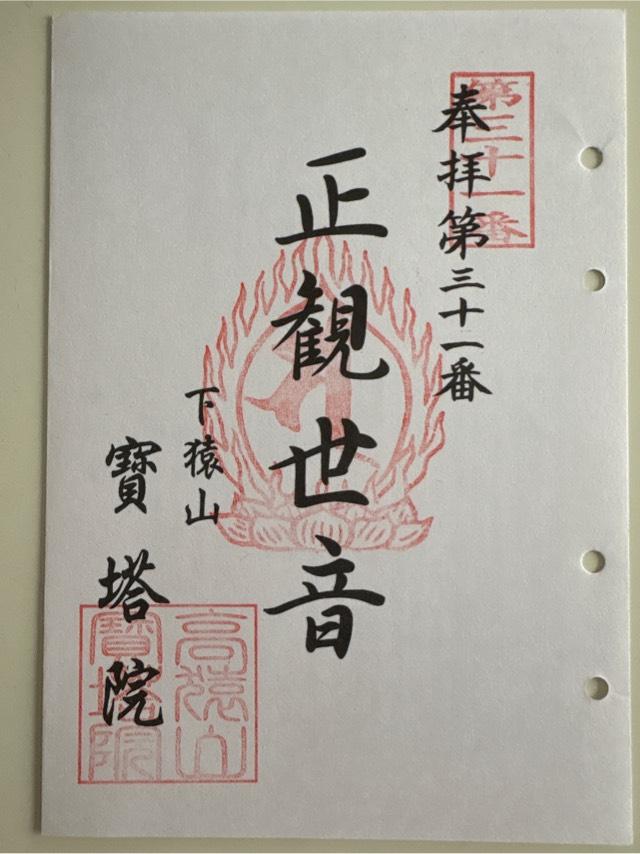 奉拝第三十一番
第三十一番
正観世音
下猿山
寶塔院
高猿山
寶塔院